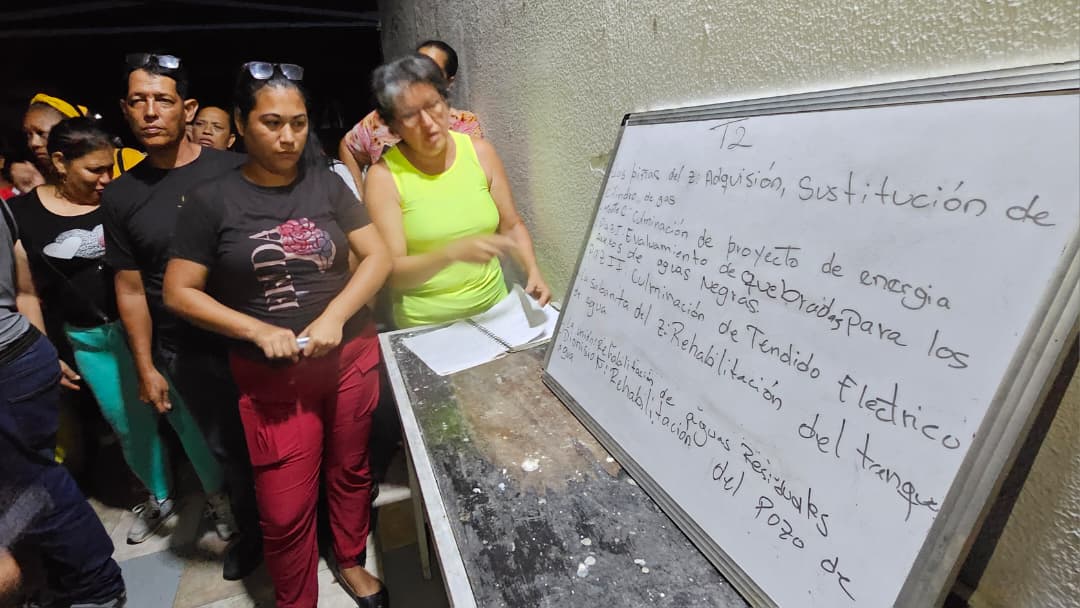 T2
Las brisas del z: Adquisión, Sustitución de
cilindro de gas
Culminación de proyecto de energia
Evaluamiento de Quebradas Para los
de aguas Negras.
III Culminación de Tendido Electrico
Sabanita del z: Rehabilitación del tranque
de agua
La unión: Rehabilitación de aguas Residuales
Dionisito: Rehabilitación del Pozo de
agua